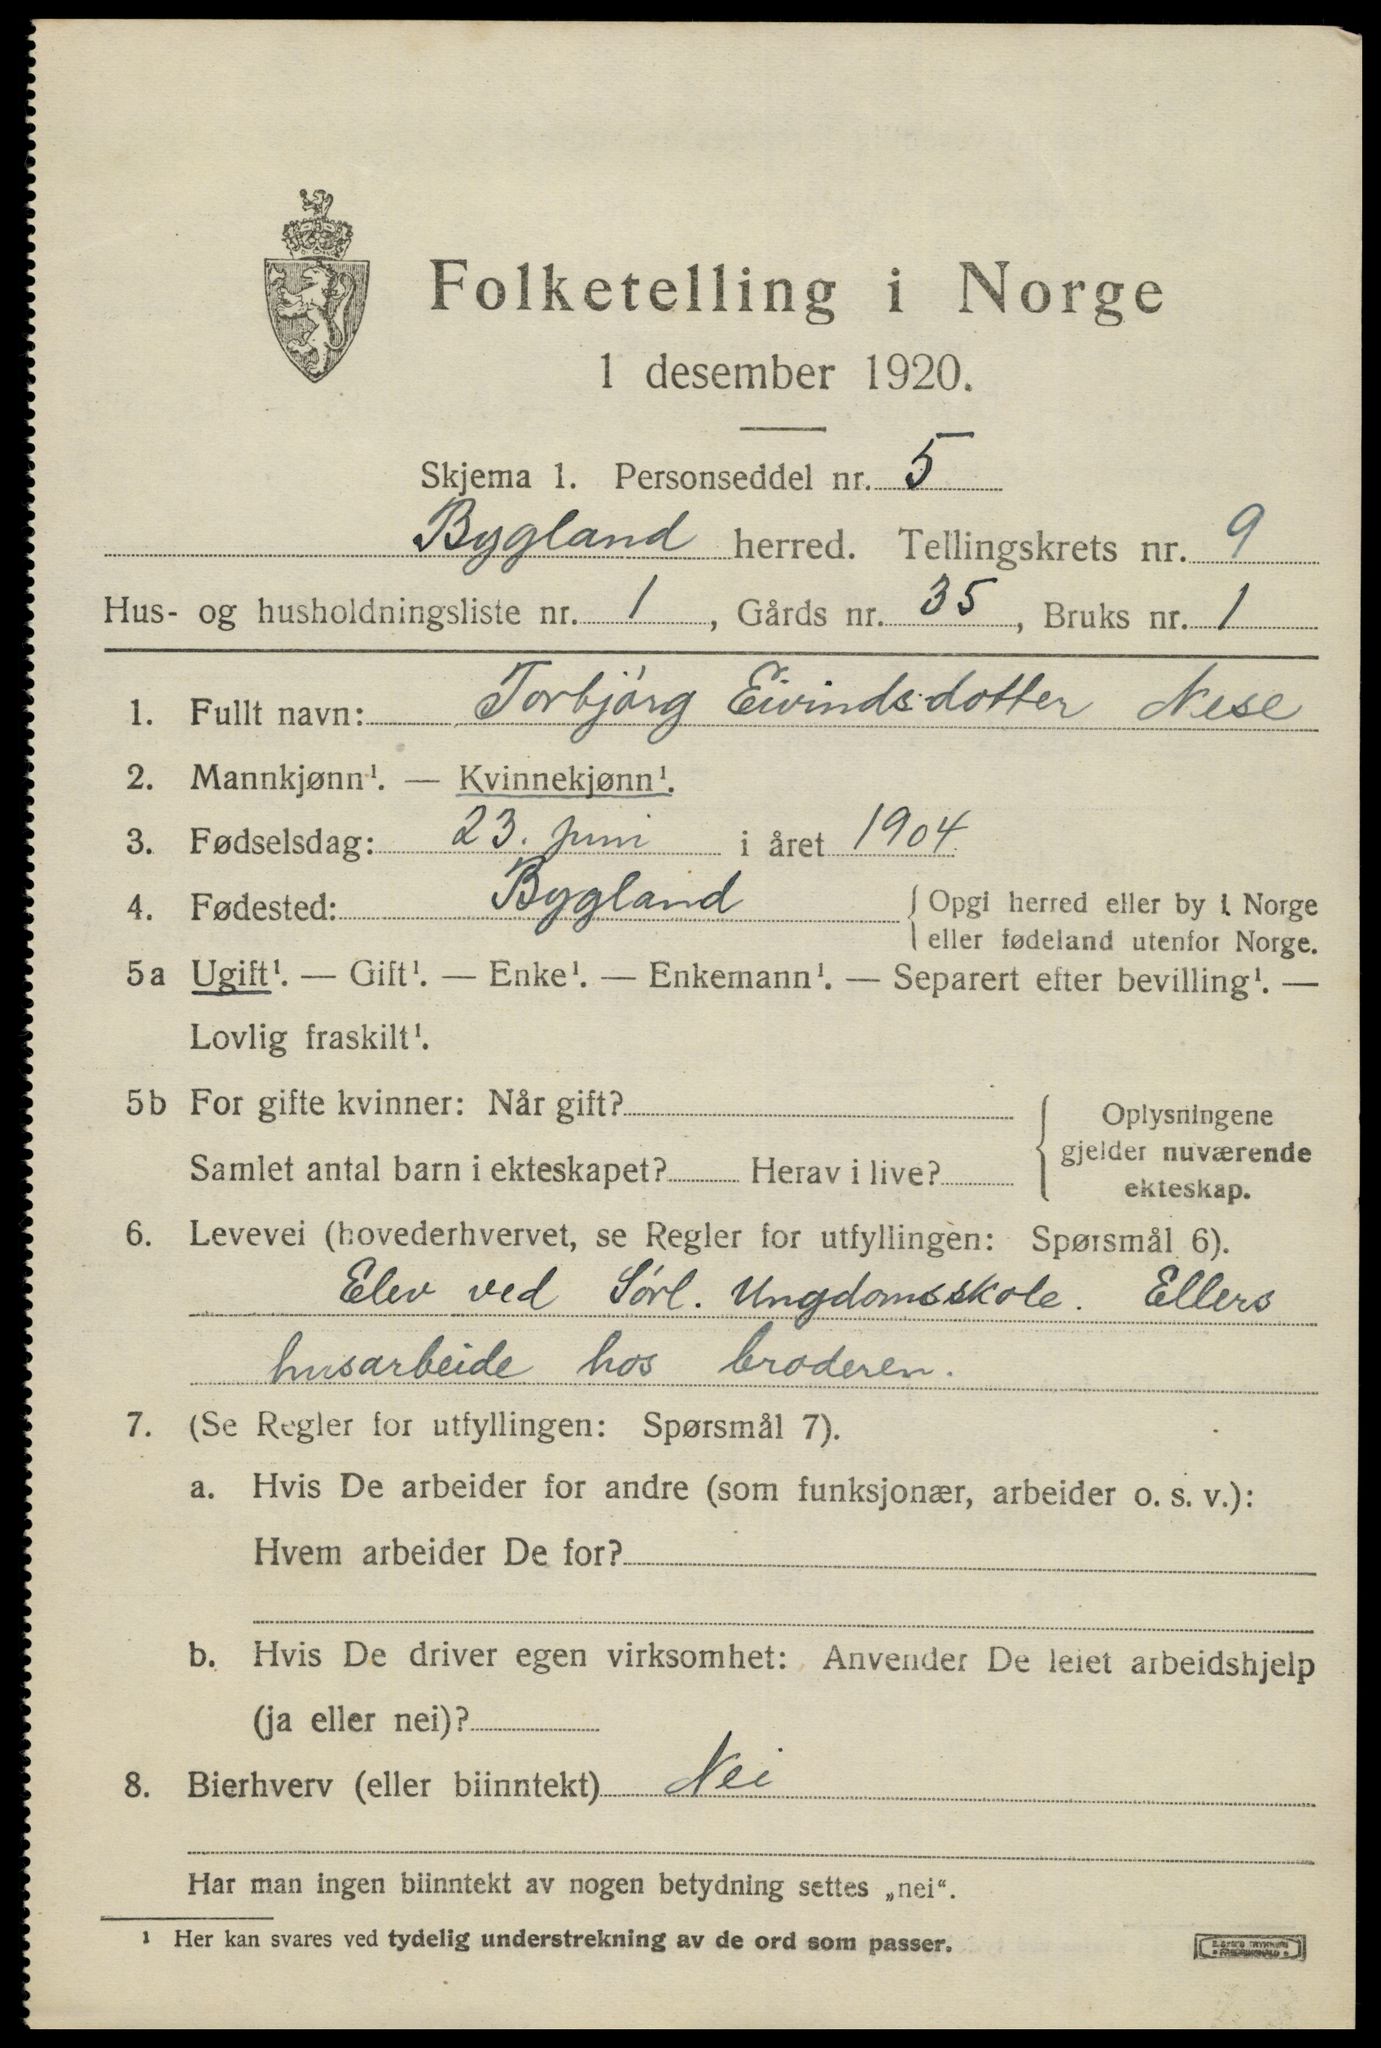 Folketelling i Norge
1 desember 1920.
Skjema 1. Personseddel nr. 5
Bygland herred. Tellingskrets nr. 9
Hus- og husholdningsliste nr. 1, Gårds nr. 35, Bruks nr. 1
1. Fullt navn: Torbjórg Eivindsdotter Nese
2. Mannkjønn¹. — Kvinnekjønn¹.
3. Fødselsdag: 23. juni i året 1904
4. Fødested: Bygland { Opgi herred eller by i Norge
eller fødeland utenfor Norge.
5a Ugift¹. — Gift¹. — Enke¹. — Enkemann¹. — Separert efter bevilling¹. —
Lovlig fraskilt¹.
5b For gifte kvinner: Når gift?
Samlet antal barn i ekteskapet? Herav i live?
{ Oplysningene
gjelder nuværende
ekteskap.
6. Levevei (hovederhvervet, se Regler for utfyllingen: Spørsmål 6).
Elev ved Sórl. Ungdomsskole. Ellers
husarbeide hos broderen.
7. (Se Regler for utfyllingen: Spørsmål 7).
a. Hvis De arbeider for andre (som funksjonær, arbeider o. s. v.):
Hvem arbeider De for?
b. Hvis De driver egen virksomhet: Anvender De leiet arbeidshjelp
(ja eller nei)?
8. Bierhverv (eller biinntekt) Nei
Har man ingen biinntekt av nogen betydning settes „nei“.
¹ Her kan svares ved tydelig understrekning av de ord som passer.